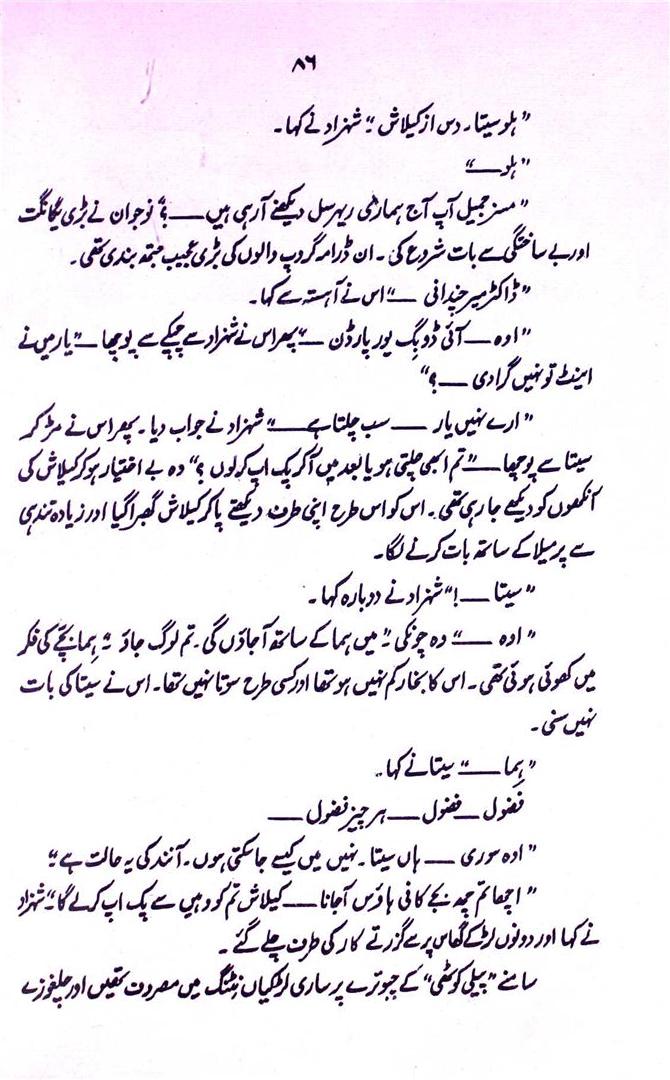 ۸۶
"ہلو سیتا۔ دس از کیلاش"۔ شہزاد نے کہا۔
"ہلو——"
"مسز جمیل آپ آج ہماری ریہرسل دیکھنے آرہی ہیں——؟" نوجوان نے بڑی یگانگت
اور بے ساختگی سے بات شروع کی۔ ان ڈرامہ گروپ والوں کی بڑی عجیب جتھہ بندی تھی۔
"ڈاکٹر میر چندانی——" اس نے آہستہ سے کہا۔
"اوہ——آئی ڈو بگ یور پارڈن——" پھر اس نے شہزاد سے چپکے سے پوچھا——"یار میں نے
اینٹ تو نہیں گرا دی——؟"
"ارے نہیں یار——سب چلتا ہے——" شہزاد نے جواب دیا۔ پھر اس نے مڑ کر
سیتا سے پوچھا——"تم ابھی چلتی ہو یا بعد میں آکر پک اپ کر لوں؟" وہ بے اختیار ہو کر کیلاش کی
آنکھوں کو دیکھے جا رہی تھی۔ اس کو اس طرح اپنی طرف دیکھتے پا کر کیلاش گھبرا گیا اور زیادہ تندہی
سے پرمیلا کے ساتھ بات کرنے لگا۔
"سیتا——!" شہزاد نے دوبارہ کہا۔
"اوہ——" وہ چونکی۔ "میں ہما کے ساتھ آجاؤں گی۔ تم لوگ جاؤ"۔ ہِما بچّے کی فکر
میں کھوئی ہوئی تھی۔ اس کا بخار کم نہیں ہوتھا اور کسی طرح سوتا نہیں تھا۔ اس نے سیتا کی بات
نہیں سنی۔
"ہِما——" سیتا نے کہا۔
فضول——فضول——ہر چیز فضول——
"اوہ سوری——ہاں سیتا۔ نہیں میں کیسے جا سکتی ہوں۔ آنند کی یہ حالت ہے"۔
"اچھا تم چھ بجے کافی ہاؤس آجانا——کیلاش تم کو وہیں سے پک اپ کرلے گا"۔ شہزاد
نے کہا اور دونوں لڑکے گھاس پر سے گزرتے کار کی طرف چلے گئے۔
سامنے "پیلی کوٹھی" کے چبوترے پر ساری لڑکیاں نِٹنگ میں مصروف تھیں اور چلغوزے